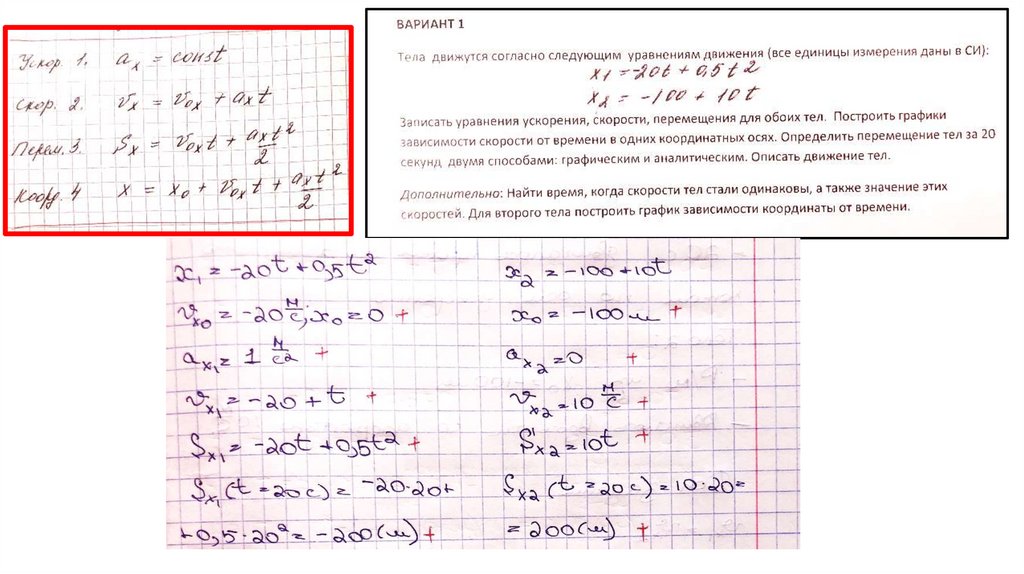 Ускор. 1. aₓ = const
Скор. 2. vₓ = v₀ₓ + aₓt
Перем. 3. Sₓ = v₀ₓt + aₓt²/2
Коорд. 4 x = x₀ + v₀ₓt + aₓt²/2
ВАРИАНТ 1
Тела движутся согласно следующим уравнениям движения (все единицы измерения даны в СИ):
x₁ = -20t + 0,5t²
x₂ = -100 + 10t
Записать уравнения ускорения, скорости, перемещения для обоих тел. Построить графики
зависимости скорости от времени в одних координатных осях. Определить перемещение тел за 20
секунд двумя способами: графическим и аналитическим. Описать движение тел.
Дополнительно: Найти время, когда скорости тел стали одинаковы, а также значение этих
скоростей. Для второго тела построить график зависимости координаты от времени.
x₁ = -20t + 0,5t²
vₓ₀ = -20 м/с; x₀ = 0 +
aₓ₁ = 1 м/с² +
vₓ₁ = -20 + t +
Sₓ₁ = -20t + 0,5t² +
Sₓ₁ (t = 20 с) = -20·20 +
+ 0,5·20² = -200 (м) +
x₂ = -100 + 10t
x₀ = -100 м +
aₓ₂ = 0 +
vₓ₂ = 10 м/с +
Sₓ₂ = 10t +
Sₓ₂ (t = 20 с) = 10·20 =
= 200 (м) +